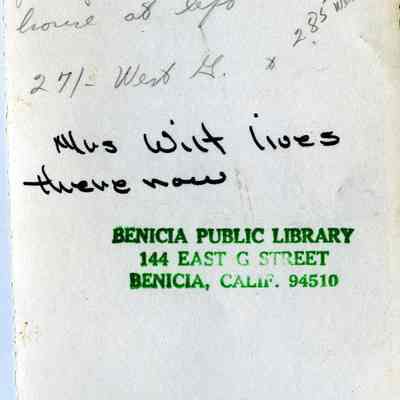 house at left
271- West G. x 285
Mrs Wilt lives
there now
BENICIA PUBLIC LIBRARY
144 EAST G STREET
BENICIA, CALIF. 94510